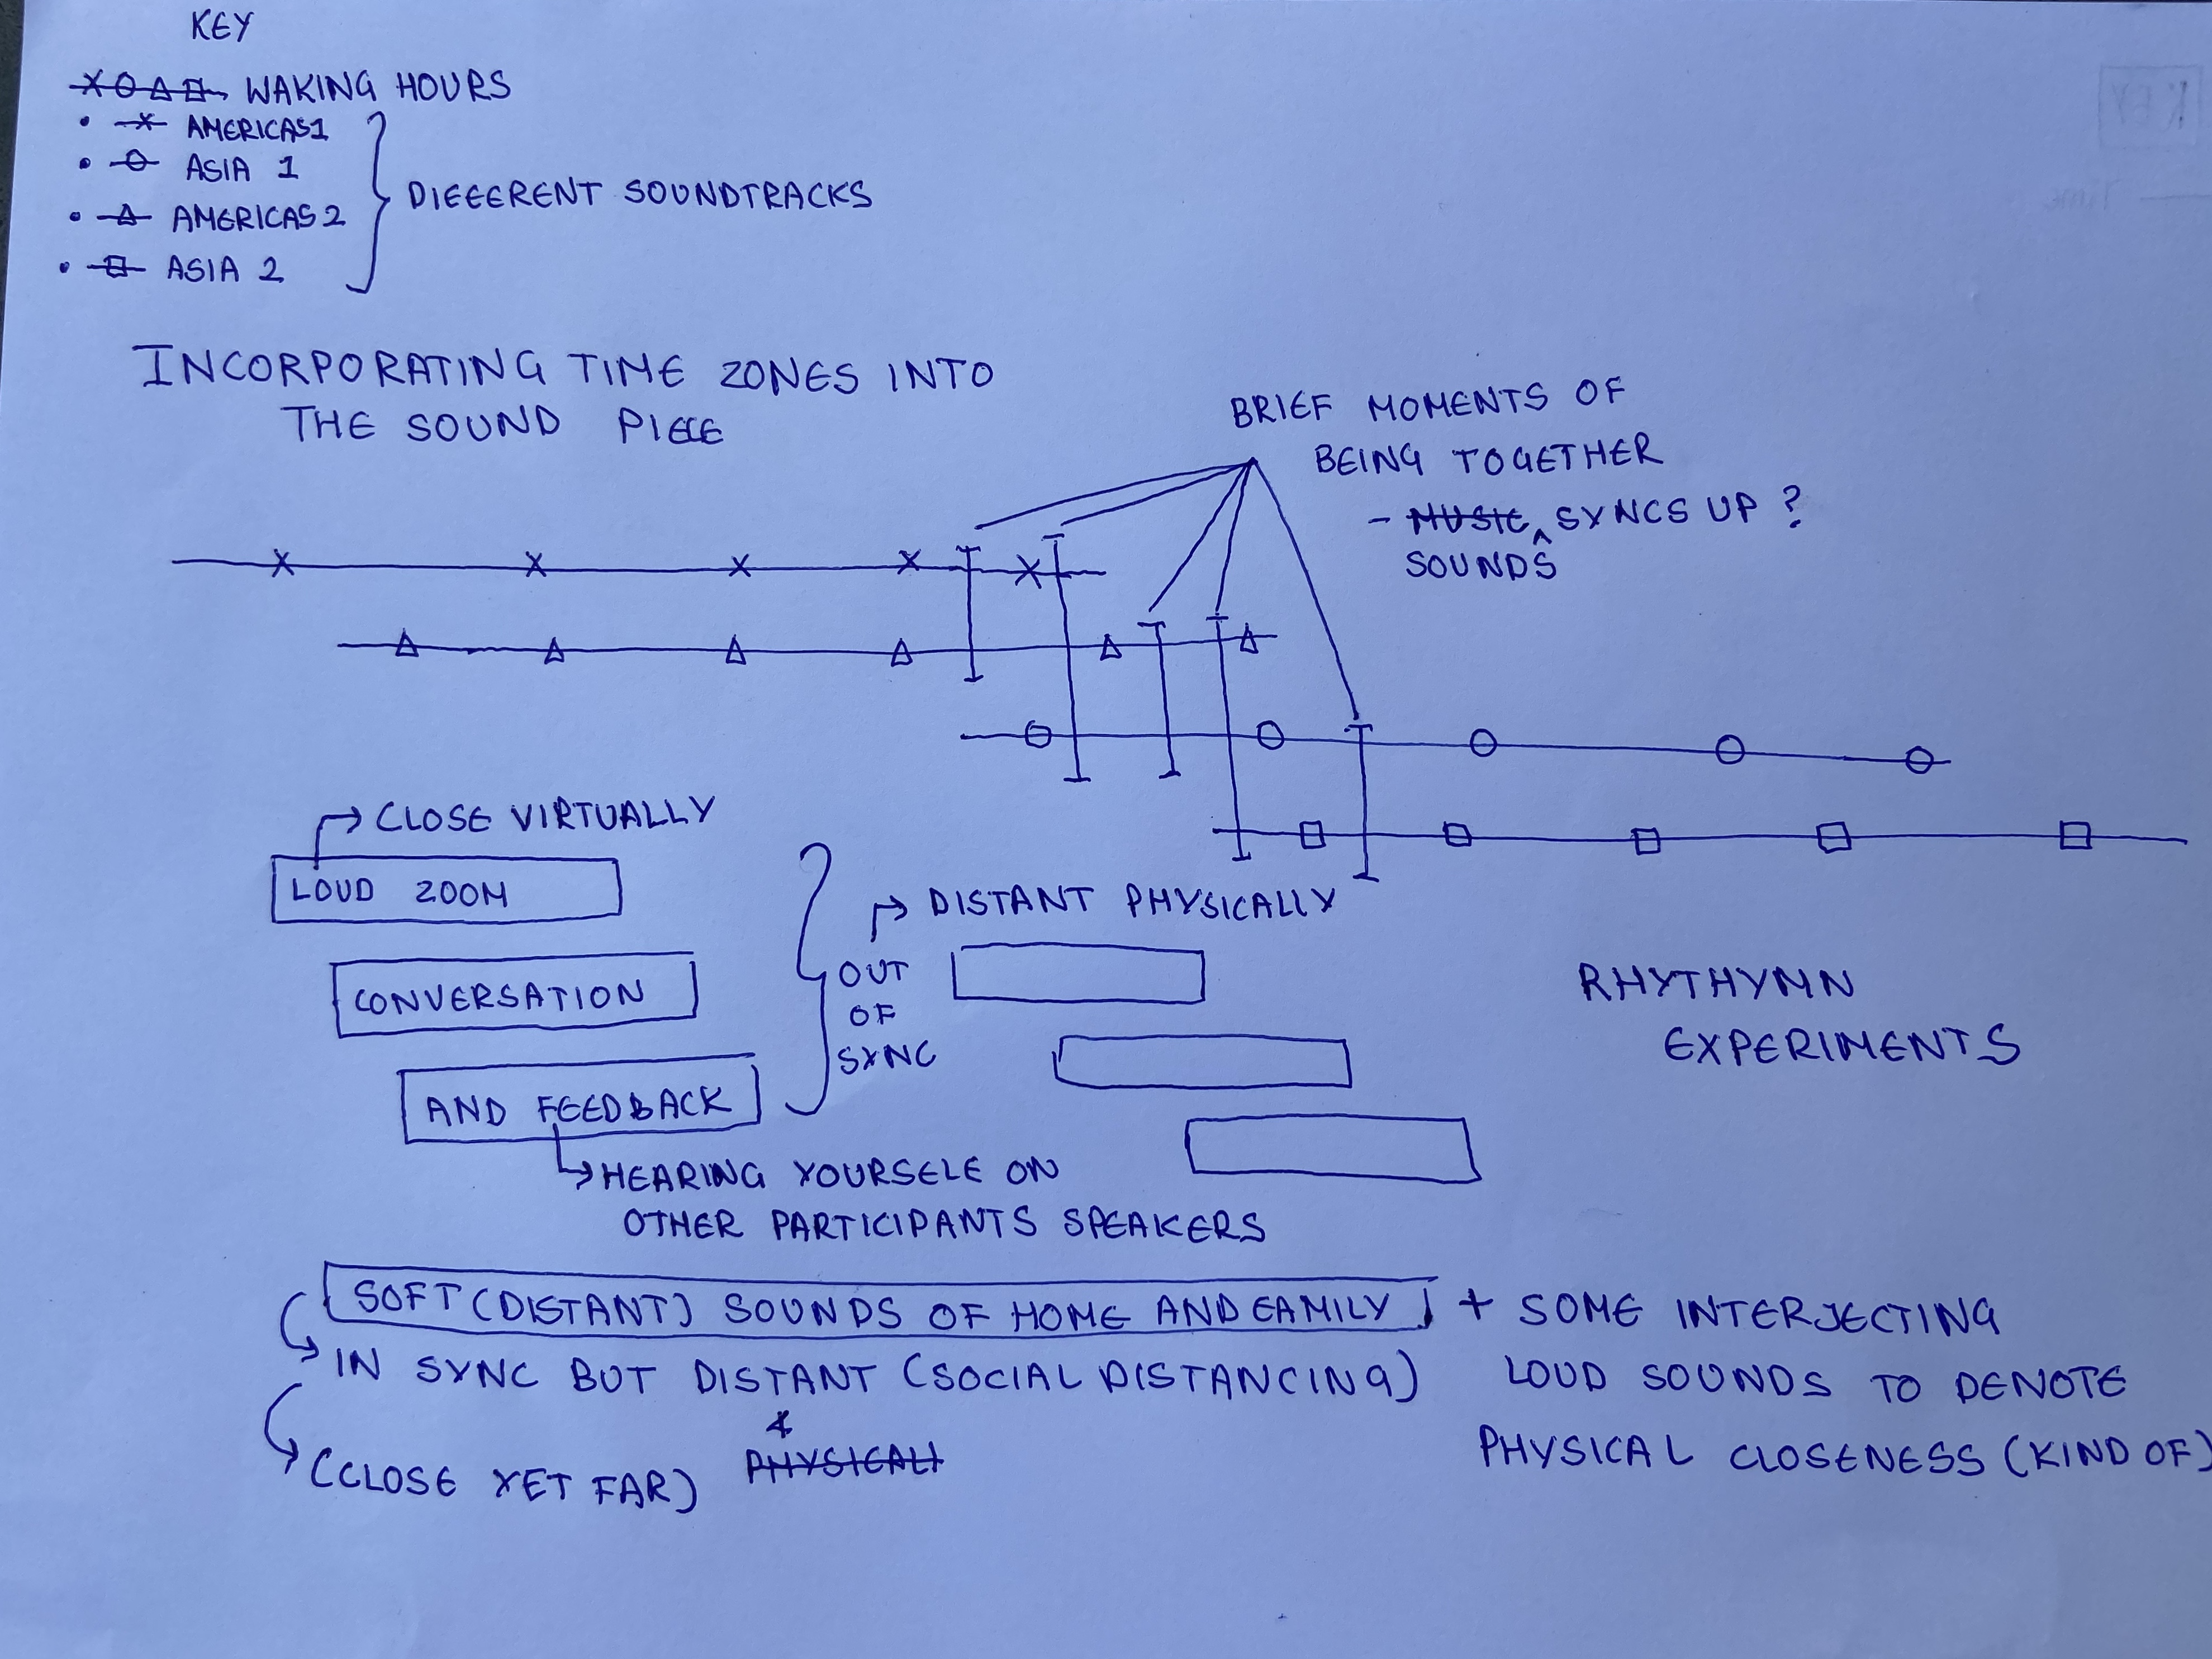 KEY
WAKING HOURS
• AMERICAS1
• ASIA 1
• AMERICAS 2
• ASIA 2
DIFFERENT SOUNDTRACKS
INCORPORATING TIME ZONES INTO
THE SOUND PIECE
BRIEF MOMENTS OF
BEING TOGETHER
- MUSIC SYNCS UP ?
SOUNDS
CLOSE VIRTUALLY
LOUD ZOOM
CONVERSATION
AND FEEDBACK
OUT
OF
SYNC
DISTANT PHYSICALLY
RHYTHYMN
EXPERIMENTS
HEARING YOURSELF ON
OTHER PARTICIPANTS SPEAKERS
SOFT (DISTANT) SOUNDS OF HOME AND FAMILY + SOME INTERJECTING
IN SYNC BUT DISTANT (SOCIAL DISTANCING) LOUD SOUNDS TO DENOTE
(CLOSE YET FAR) PHYSICALL PHYSICAL CLOSENESS (KIND OF)
KEY
Time